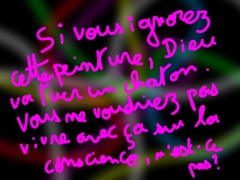 Si vous ignorez
cette peinture, Dieu
va tuer un chaton.
Vous ne voudriez pas
vivre avec ça sur la
conscience, n'est-ce
pas?